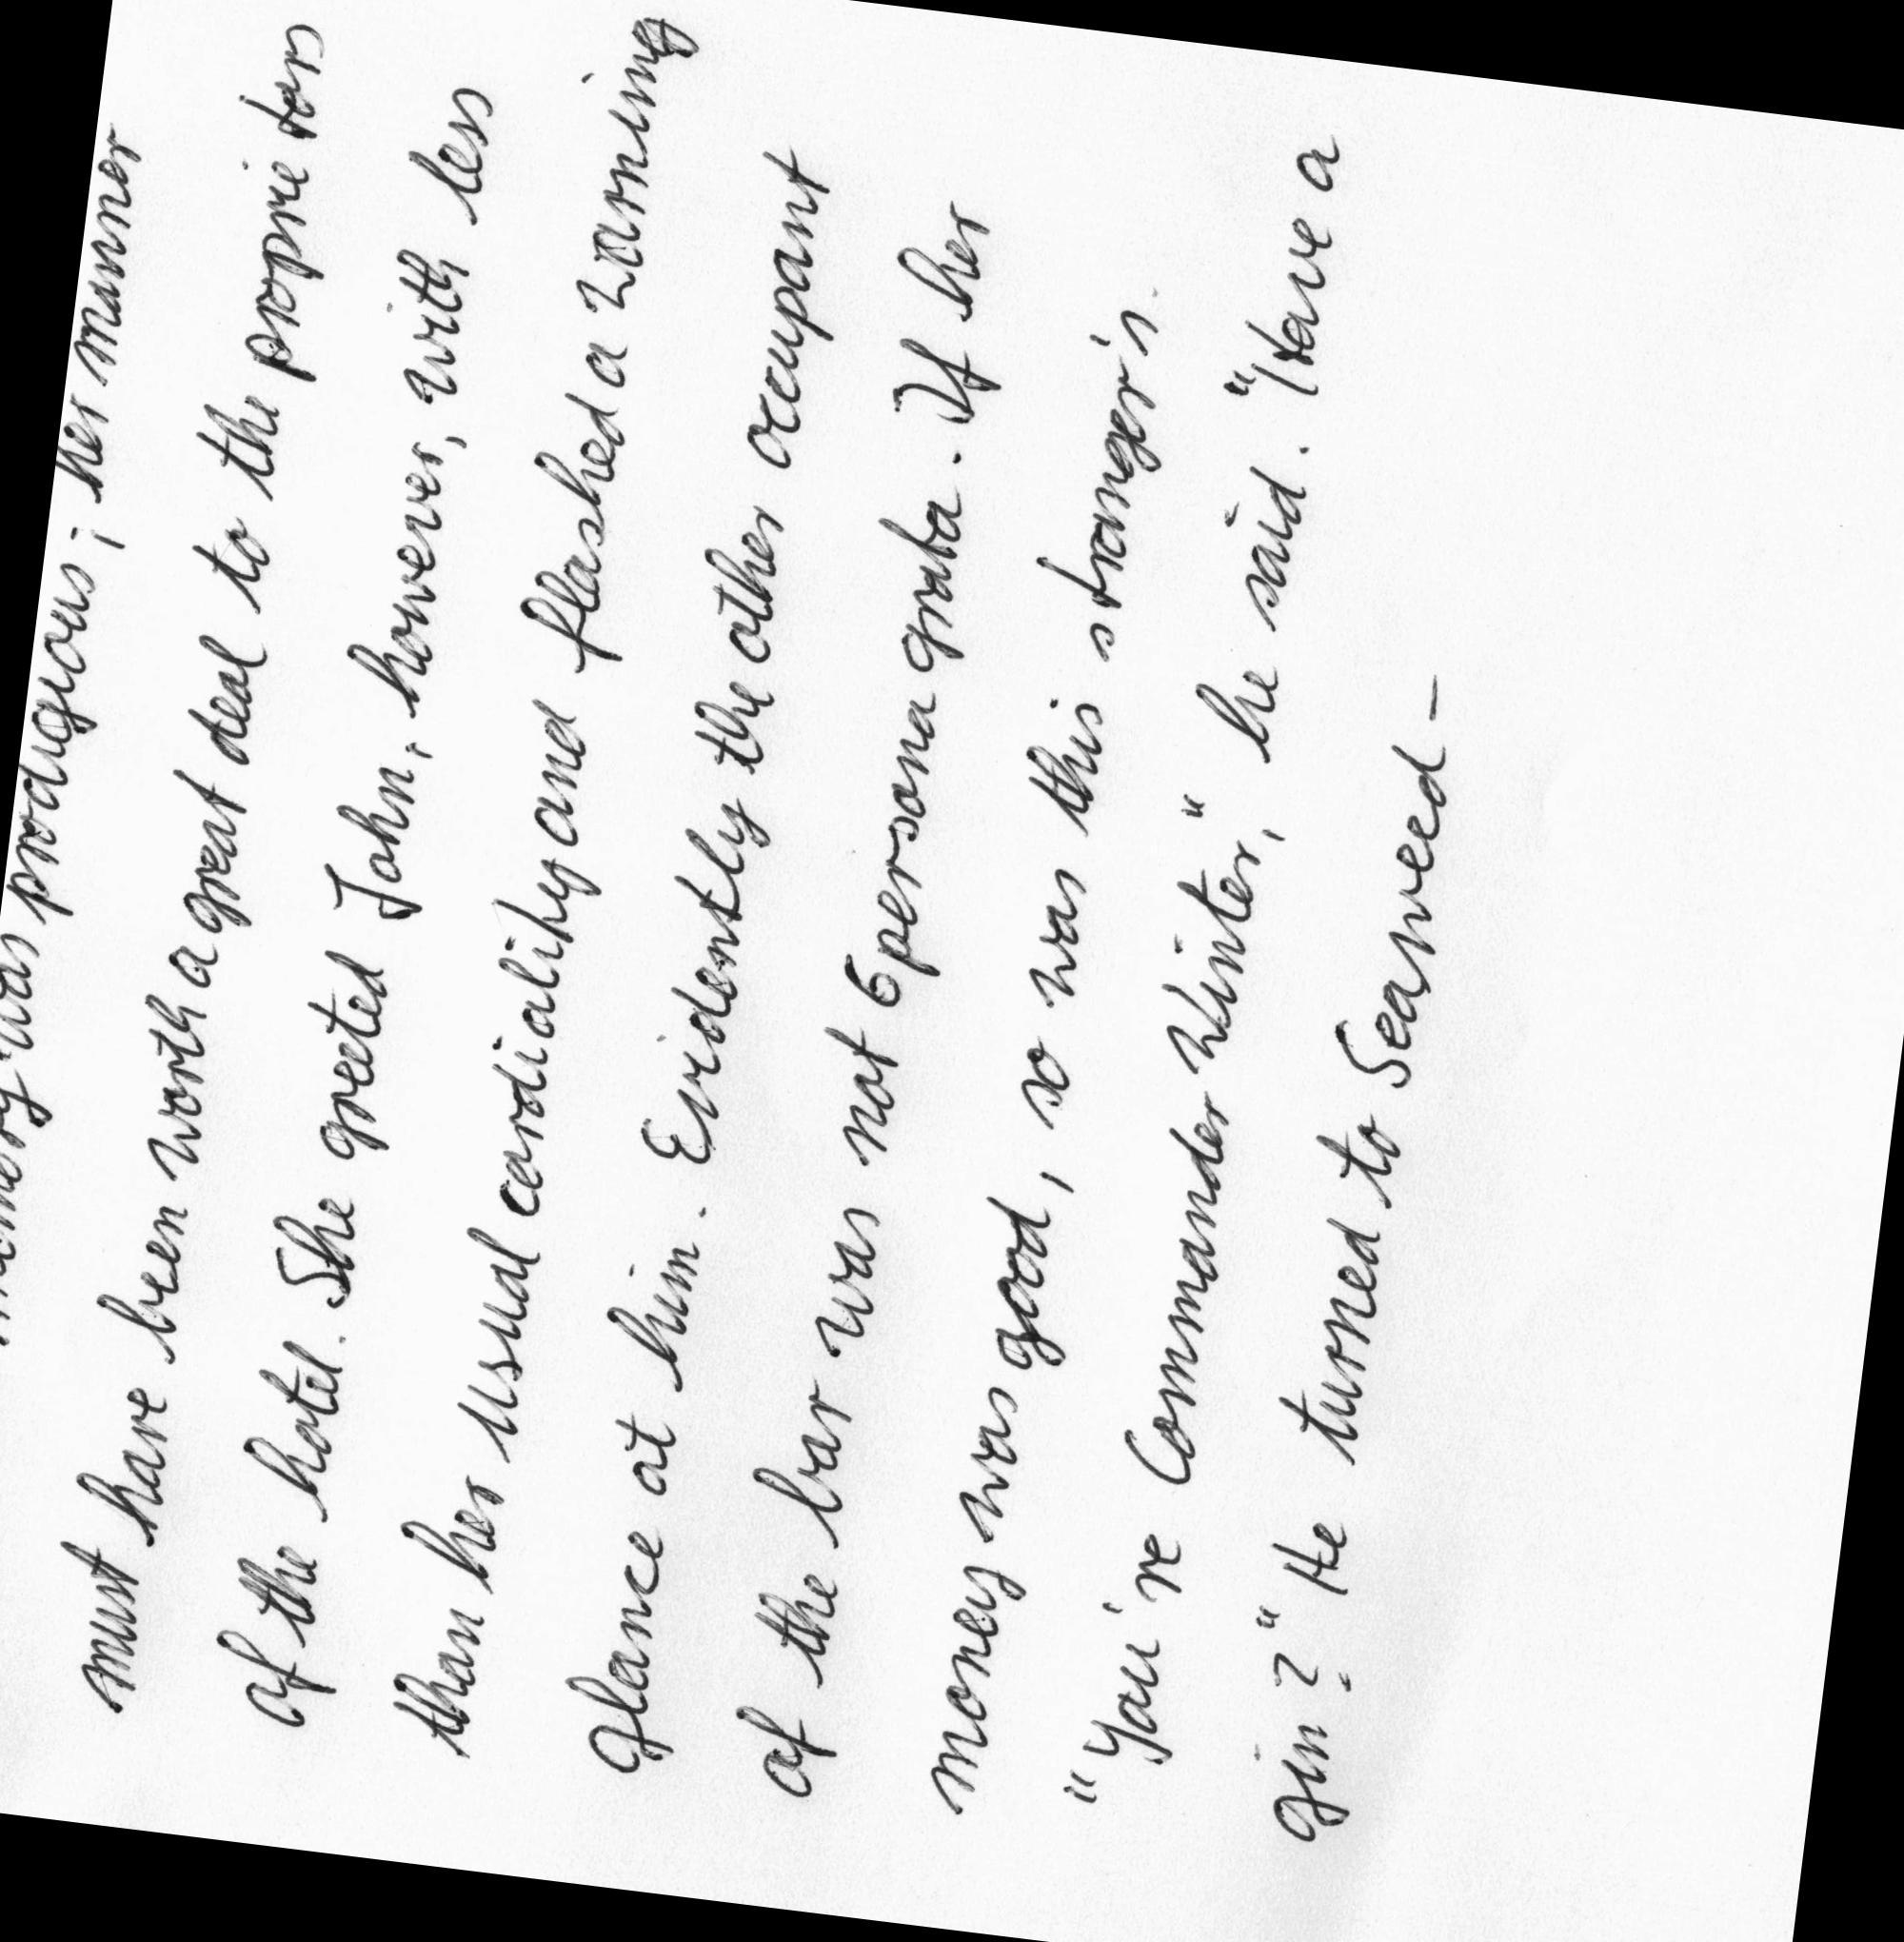 memory was prodigious; her manner
must have been worth a great deal to the proprietors
of the hotel. She greeted John, however, with less
than her usual cordiality and flashed a warning
glance at him. Evidently the other occupant
of the bar was not 6 persona grata. If her
money was good, so was this stranger's.
"You're Commander Winter," he said. "Have a
gin?" He turned to Seaweed -